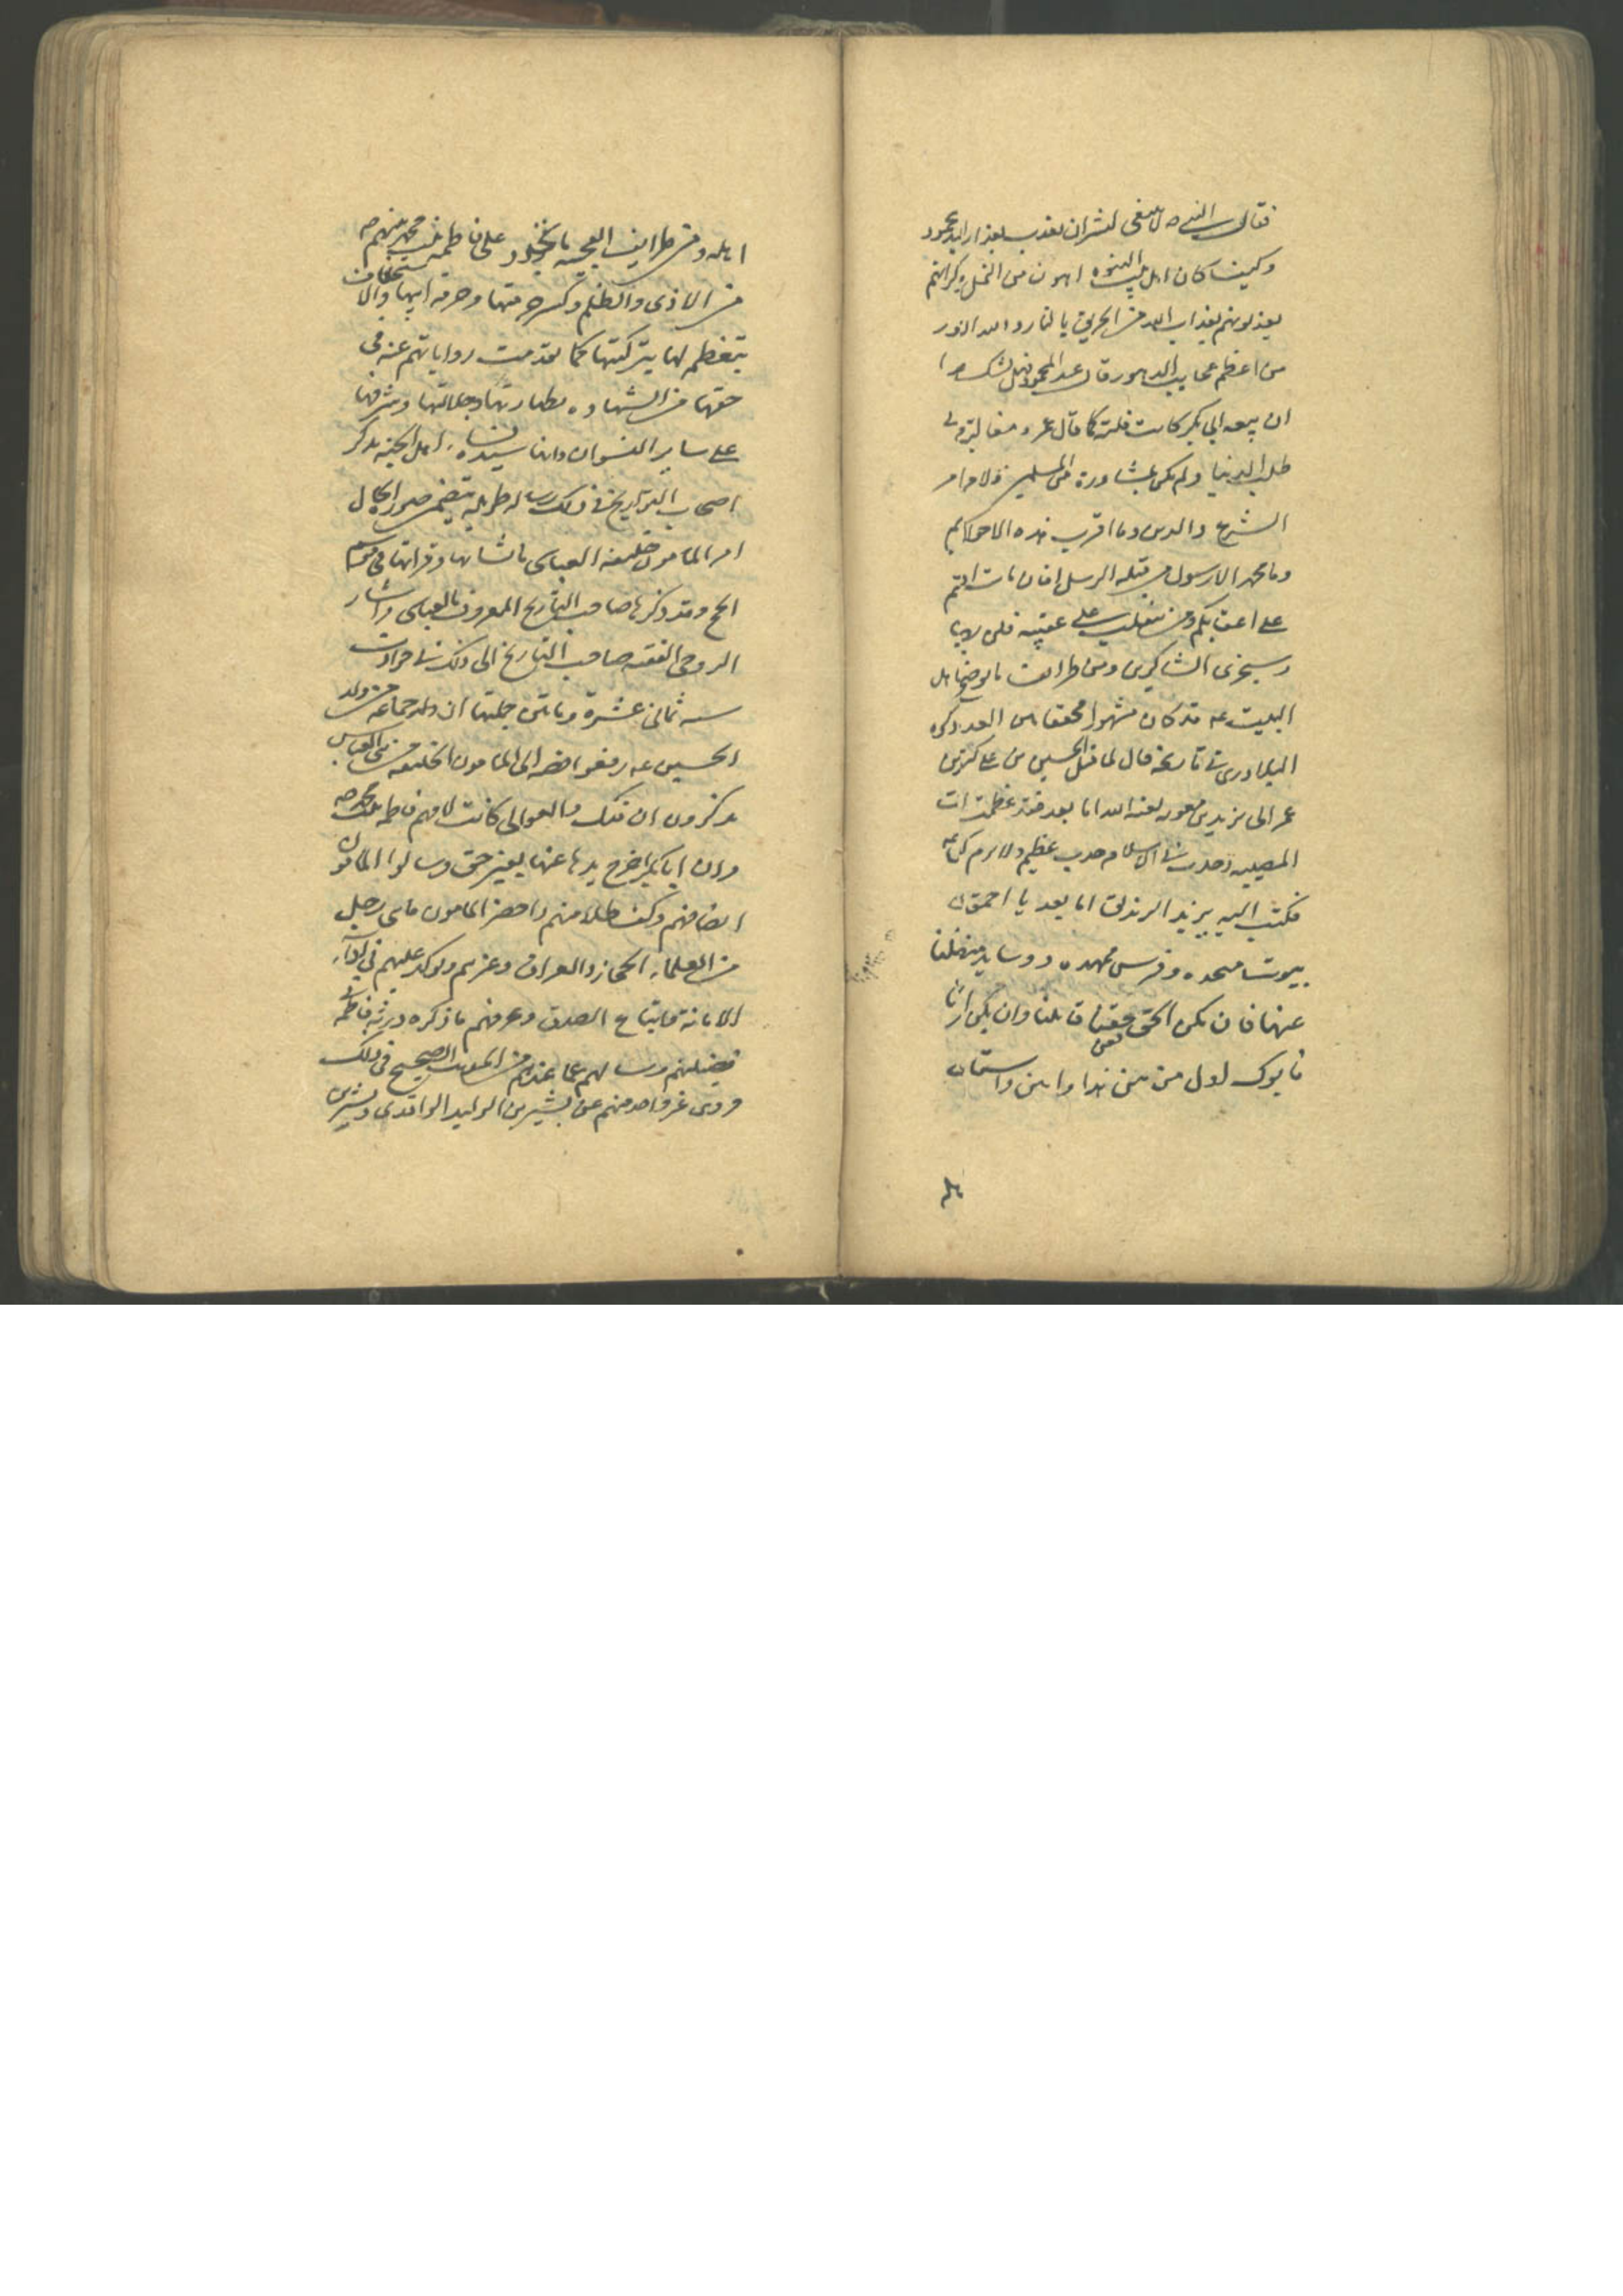 فقال النبي ص لا ينبغي لبشر ان يعذب بعذاب الله عبد المحمود
وكيف كان اهل بيت النبوة اهون من النمل وكراهتم
يعذبونهم بعذاب الله من الحريق بالنار والله الامور
من اعظم عجايب الدهور قال عبد المحمود فهل تشك
ان بيعه ابي بكر كانت فلتة كما قال عمر و مغالبة في
طلب الدنيا ولم يكن بمشاورة من المسلمين
الشرع والدين وما اقرب هذه الاحوال بهم
وما محمد الا رسول من قبله الرسل افان مات
على اعقابكم ومن ينقلب على عقبيه فلن
وسيجزي الشاكرين ومن طرايف ما يوضح اهل
البيت عه قد كان مشهورا محققا من العدو ذكره
البلاذري في تاريخه قال لما قتل الحسين بن على كتب بن
عمر الى يزيد بن معويه لعنه الله اما بعد فقد عظمت
المصيبه وحدث في الاسلام حدث عظيم ولا يوم كيوم
فكتب اليه يزيد اما بعد يا احمق
بيوتا منجده وفرش ممهده ووسايد منضده فقاتلنا
عنها فان يكن الحق حقنا فعن حقنا قاتلنا وان يكن
فابوك اول من سن هذا وابتز واستاثر
اهله ومن طرايف العجيبه ما تجدد على فاطمه بنت محمد ص
من الاذى والظلم وكسر حرمتها وحرمه ابيها والاستخفاف
بتعظيمه لها بتزكيتها كما تقدمت رواياتهم عنه في
حقها من الشهادة بطهارتها وجلالتها وشرفها
على ساير النسوان وانها سيدة نساء اهل الجنه يذكر
اصحاب التواريخ في ذلك رساله طويله يتضمن صورة الحال
امر المامون خليفه العباسي بانشائها وقراءتها في موسم
الحج وقد ذكرها صاحب التاريخ المعروف بالعباسي واشار
الروحي الفقيه صاحب التاريخ الى ذلك في حوادث
سنه ثماني عشرة وماتين جملتها ان جماعه من ولد
الحسين عه رفعوا قصه الى المامون الخليفه من بني العباس
يذكرون ان فدك والعوالى كانت لامهم فاطمه بنت محمد ص
وان ابا بكر اخرج يدها عنها بغير حق وسالوا المامون
انصافهم وكشف ظلامتهم فاحضر المامون ماتي رجل
من العلماء الحجاز والعراق وغيرهم ويوكد عليهم في اداء
الامانة واتباع الصدق وعرفهم ما ذكره ورثه فاطمه في
قضيتهم وسالهم عما عندهم من الحديث الصحيح في ذلك
فروى غير واحد منهم عن بشير بن الوليد الواقدي وبشر بن